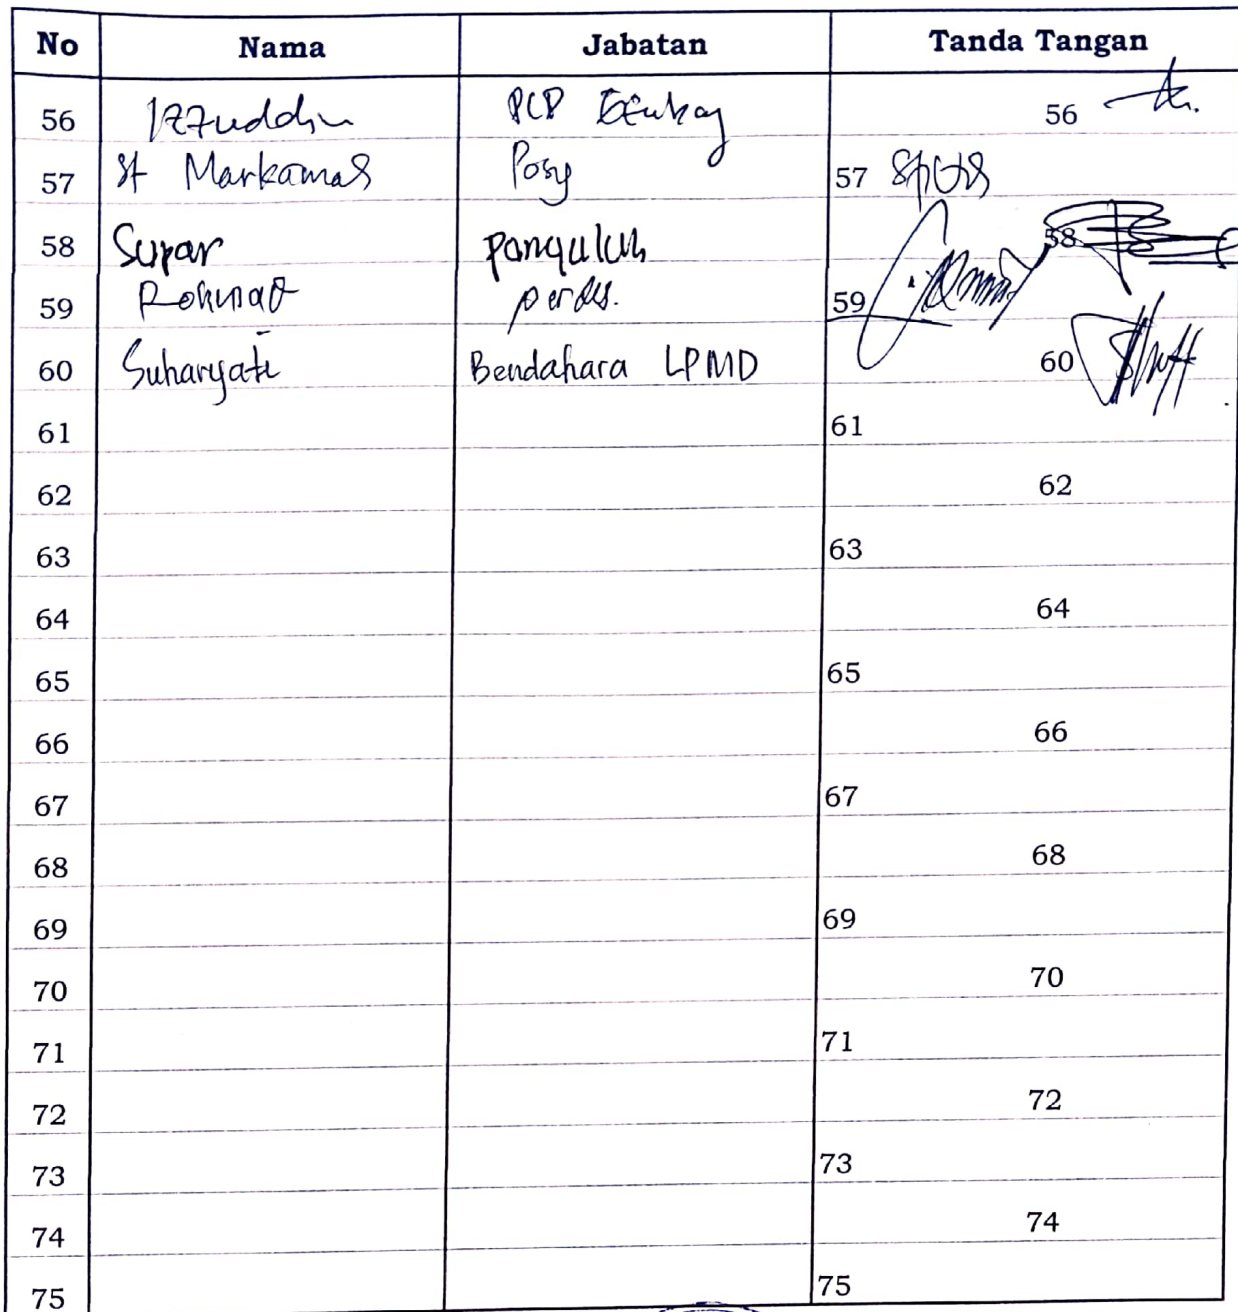 No Nama Jabatan Tanda Tangan
56 Izzuddin PCP 56
57 St Markamas Posy 57
58 Supar 58
59 perdes. 59
60 Suharyati Bendahara LPMD 60
61 61
62 62
63 63
64 64
65 65
66 66
67 67
68 68
69 69
70 70
71 71
72 72
73 73
74 74
75 75